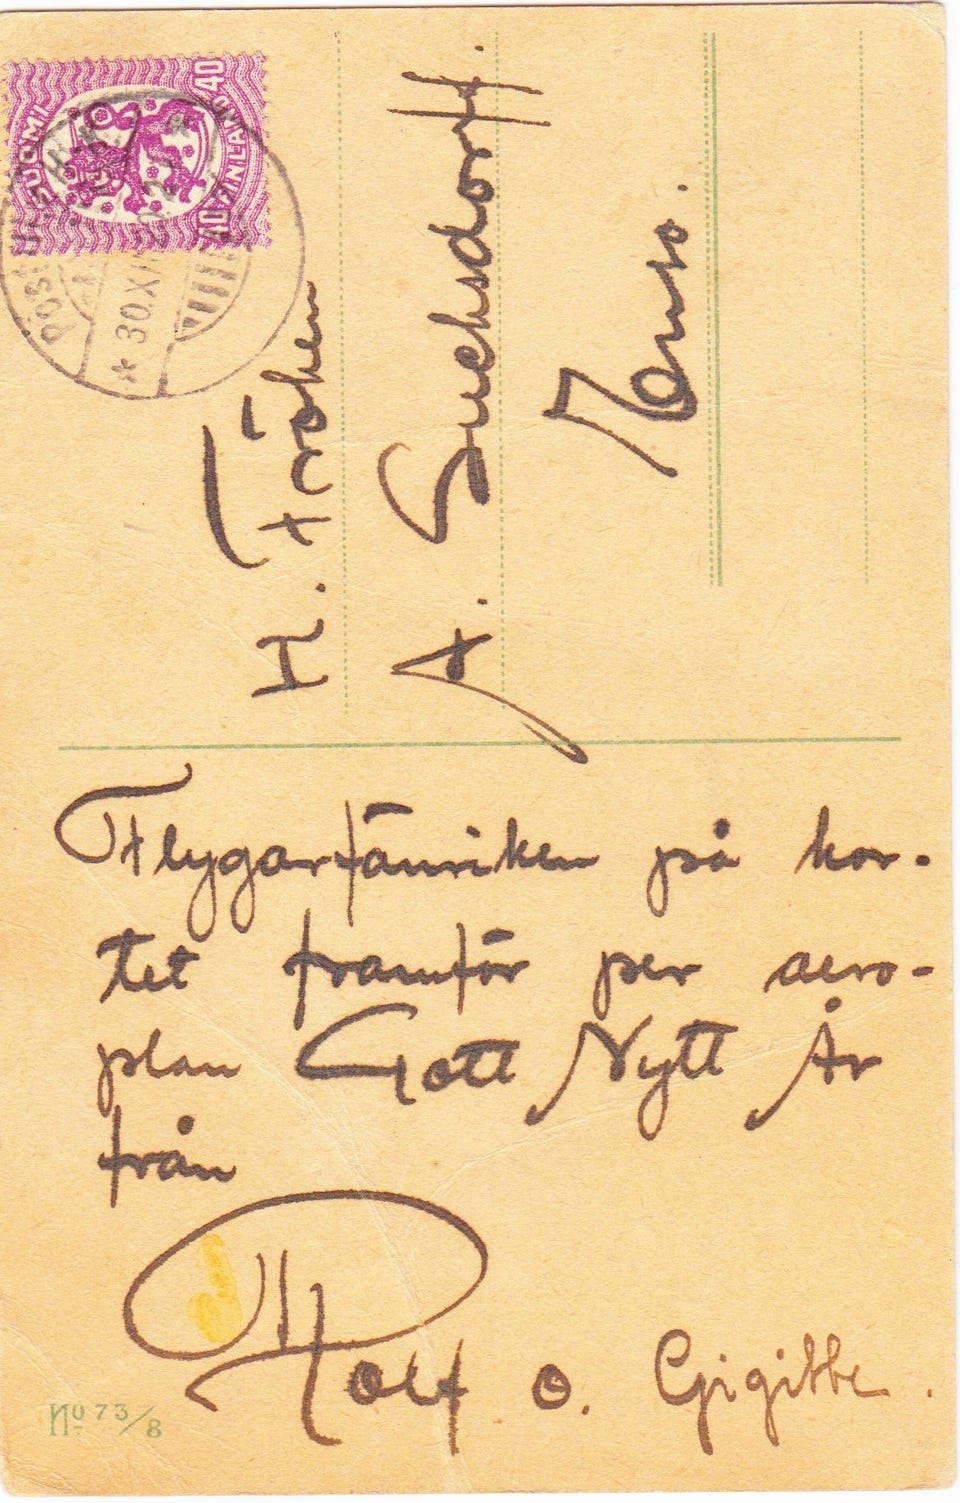 SUOMI FINLAND
40 40
30.XII
H. Fröken
A. Suchsdorff.
Enso.
Flygarfänriken på kor-
tet framför per aero-
plan Gott Nytt År
från
Rolf o. Gigibbe.
No 73/8